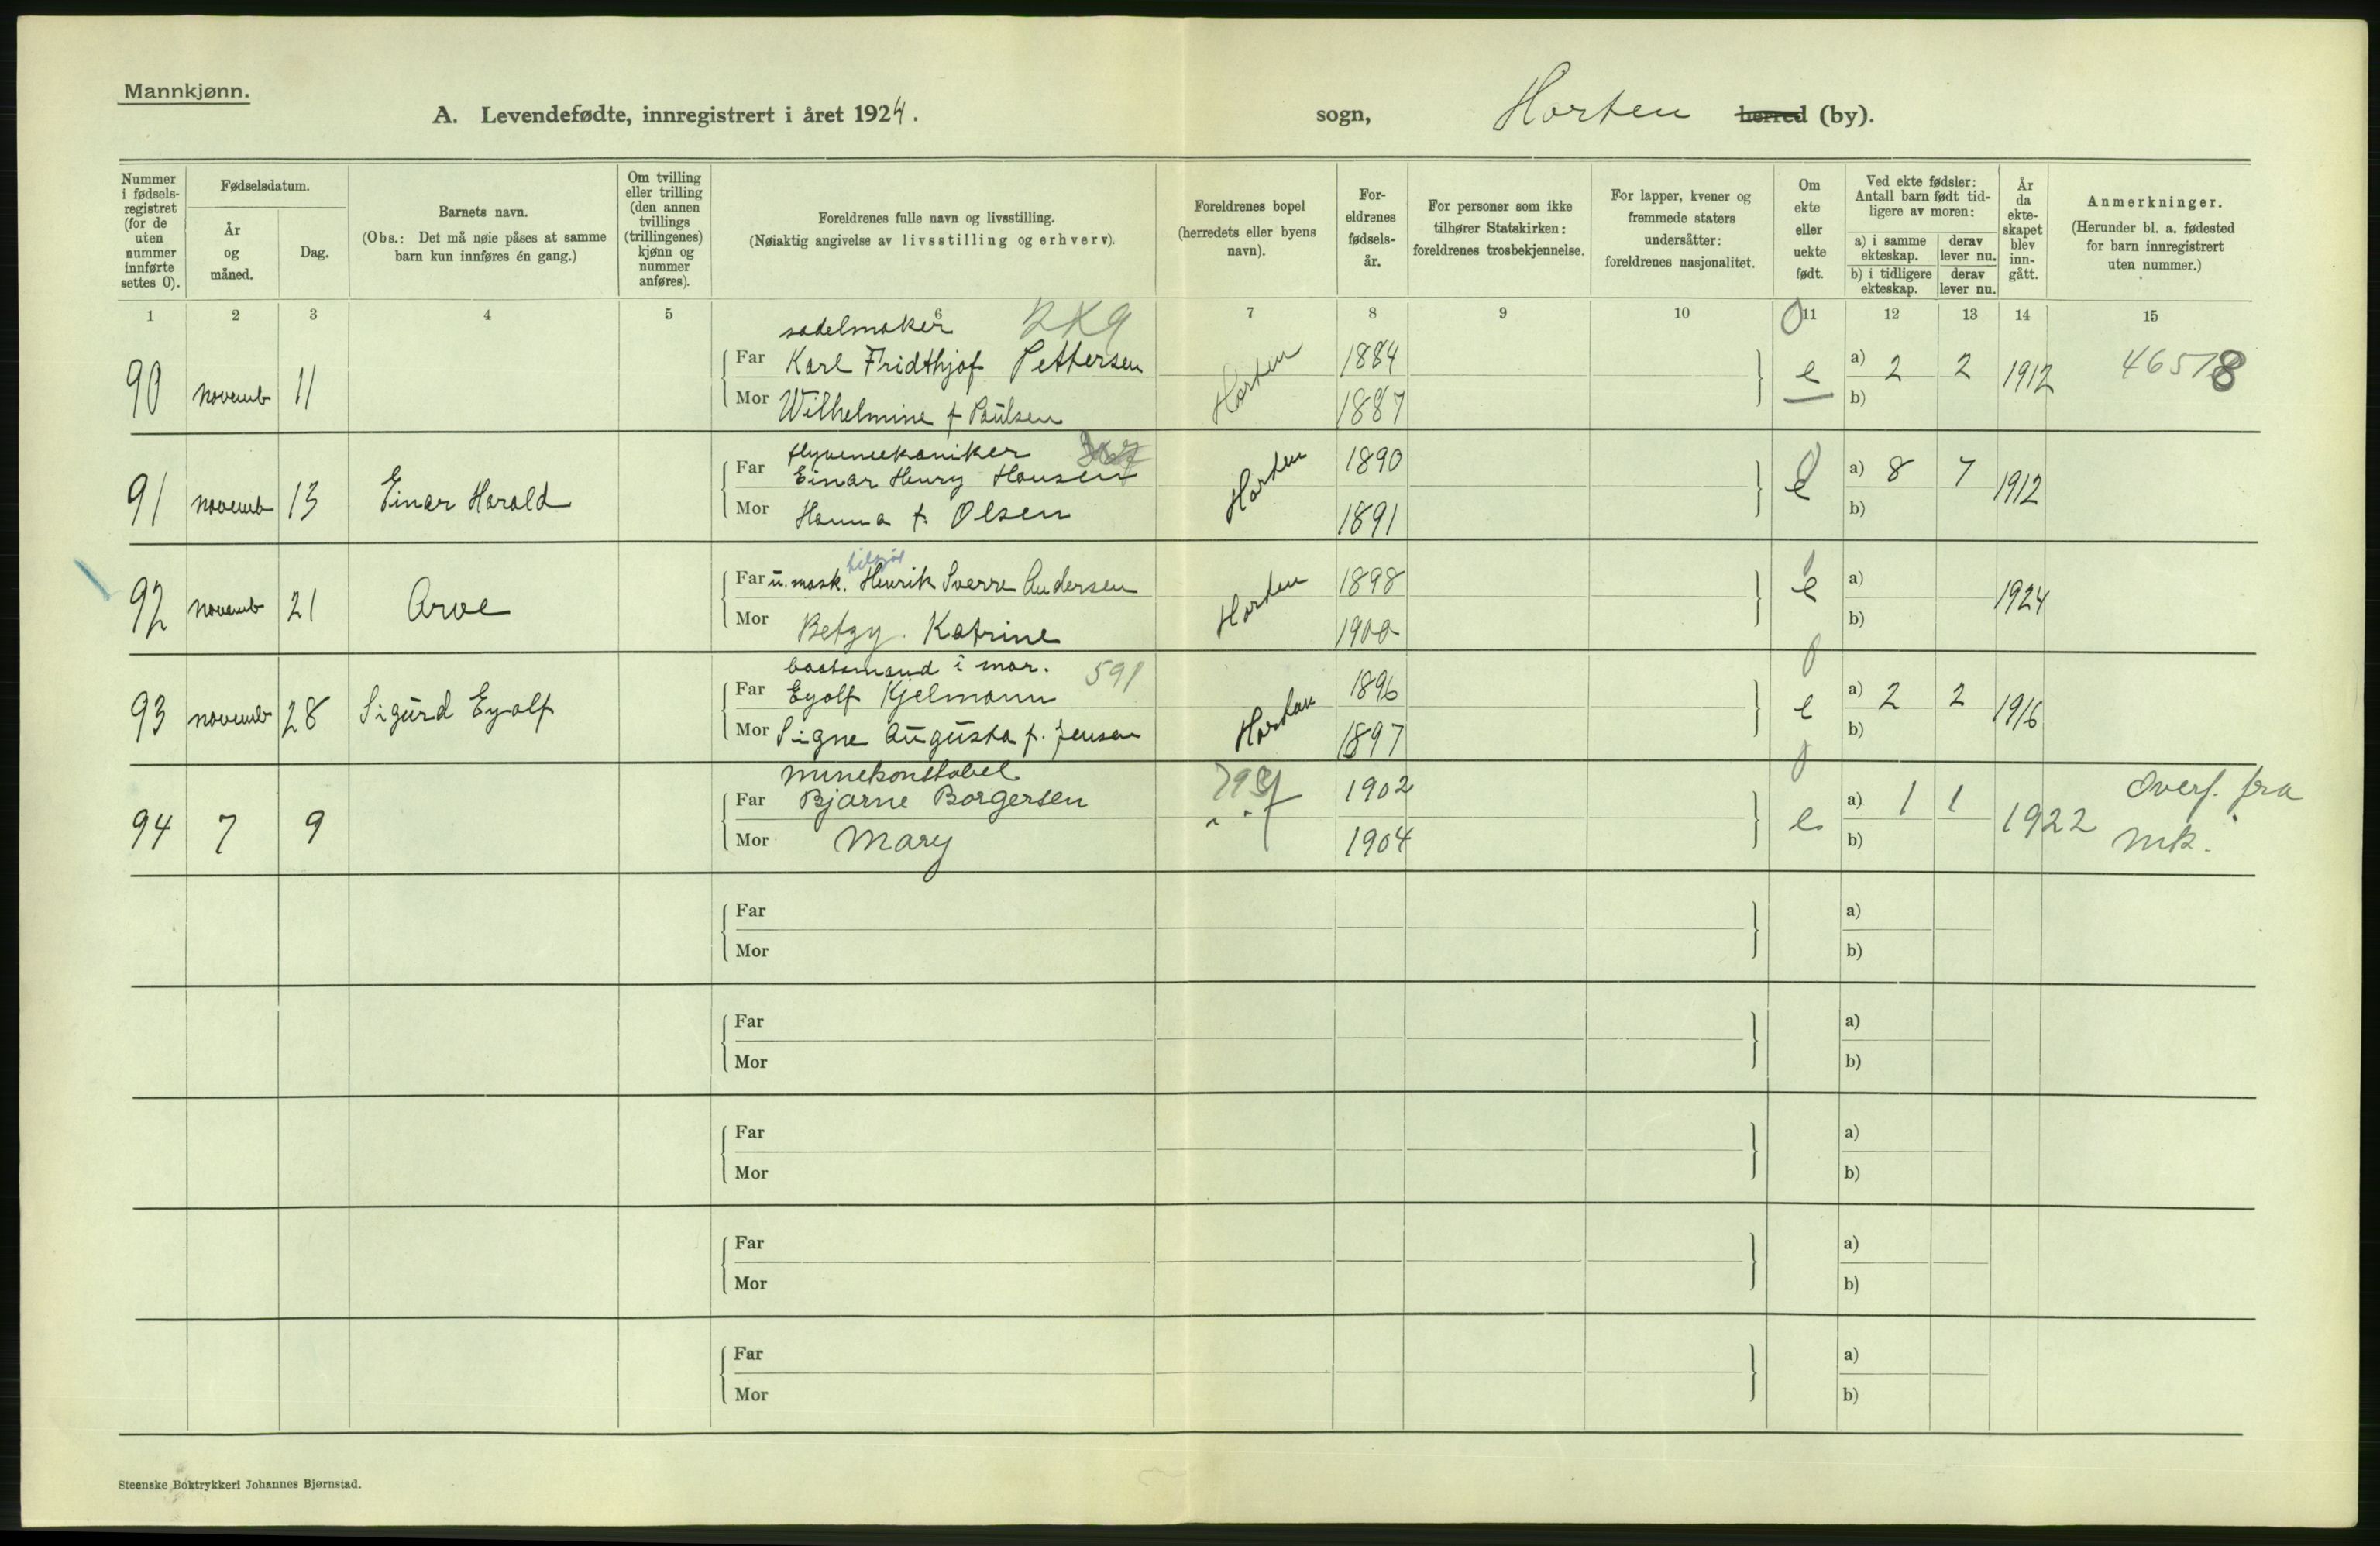 Mannkjønn.
A. Levendefødte, innregistrert i året 1924. sogn, Horten herred (by).
Nummer i fødsels-registret (for de uten nummer innførte settes 0).
Fødselsdatum.
År og måned.
Dag.
Barnets navn.
(Obs.: Det må nøie påses at samme barn kun innføres én gang.)
Om tvilling eller trilling (den annen tvillings (trillingenes) kjønn og nummer anføres).
Foreldrenes fulle navn og livsstilling.
(Nøiaktig angivelse av livsstilling og erhverv).
Foreldrenes bopel (herredets eller byens navn).
For-eldrenes fødsels-år.
For personer som ikke tilhører Statskirken: foreldrenes trosbekjennelse.
For lapper, kvener og fremmede staters undersåtter: foreldrenes nasjonalitet.
Om ekte eller uekte født.
Ved ekte fødsler: Antall barn født tid-ligere av moren:
a) i samme ekteskap. derav lever nu.
b) i tidligere ekteskap. derav lever nu.
År da ekte-skapet blev inn-gått.
Anmerkninger.
(Herunder bl. a. fødested for barn innregistrert uten nummer.)
1 2 3 4 5 6 7 8 9 10 11 12 13 14 15
sadelmaker
90 novemb 11 Far Karl Fridthjof Pettersen Horten 1884 e a) 2 2 1912 46578
Mor Wilhelmine f Paulsen 1887 b)
flyvemekaniker
91 novemb 13 Einar Harald Far Einar Henry Hansen Horten 1890 e a) 8 7 1912
Mor Hanna f. Olsen 1891 b)
92 novemb 21 Arve Far u. mask. Henrik Sverre Andersen Horten 1898 e a) 1924
Mor Betzy Katrine 1900 b)
baatsmand i mar. 591
93 novemb 28 Sigurd Eyolf Far Eyolf Kjelmann Horten 1896 e a) 2 2 1916
Mor Signe Augusta f. Jensen 1897 b)
Minekonstabel
94 7 9 Far Bjarne Borgersen 1902 e a) 1 1 1922 Overf. fra
Mor Mary 1904 b) mk.
Far a)
Mor b)
Far a)
Mor b)
Far a)
Mor b)
Far a)
Mor b)
Far a)
Mor b)
Steenske Boktrykkeri Johannes Bjørnstad.